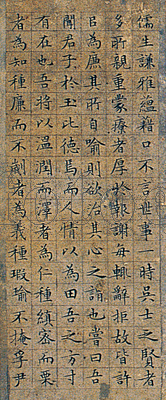 儒生謙雅縕藉口不言世事一時吳士之賢者
多所親重蒙療者厚於報謝每輒辭拒故皆許
臣為廣其所自喻則欲治其心之謂也嘗曰吾
聞君子於玉比德焉而人情以為田吾之方寸
有在也吾將以溫潤而澤者為仁種縝密而栗
者為知種廉而不劌者為義種瑕瑜不掩孚尹